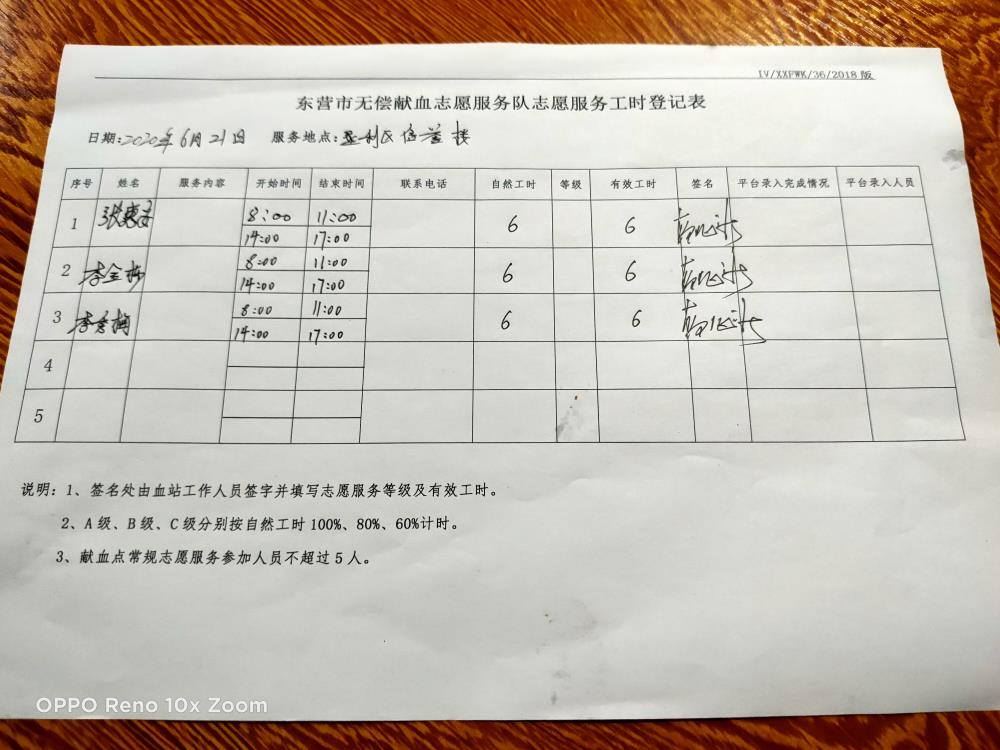 IV/XXFWK/36/2018版
东营市无偿献血志愿服务队志愿服务工时登记表
日期:2020年6月21日 服务地点:垦利区信誉楼
序号 姓名 服务内容 开始时间 结束时间 联系电话 自然工时 等级 有效工时 签名 平台录入完成情况 平台录入人员
1 8:00 11:00 6 6
14:00 17:00
2 李金梅 8:00 11:00 6 6
14:00 17:00
3 李秀梅 8:00 11:00 6 6
14:00 17:00
4
5
说明:1、签名处由血站工作人员签字并填写志愿服务等级及有效工时。
2、A级、B级、C级分别按自然工时100%、80%、60%计时。
3、献血点常规志愿服务参加人员不超过5人。
OPPO Reno 10x Zoom